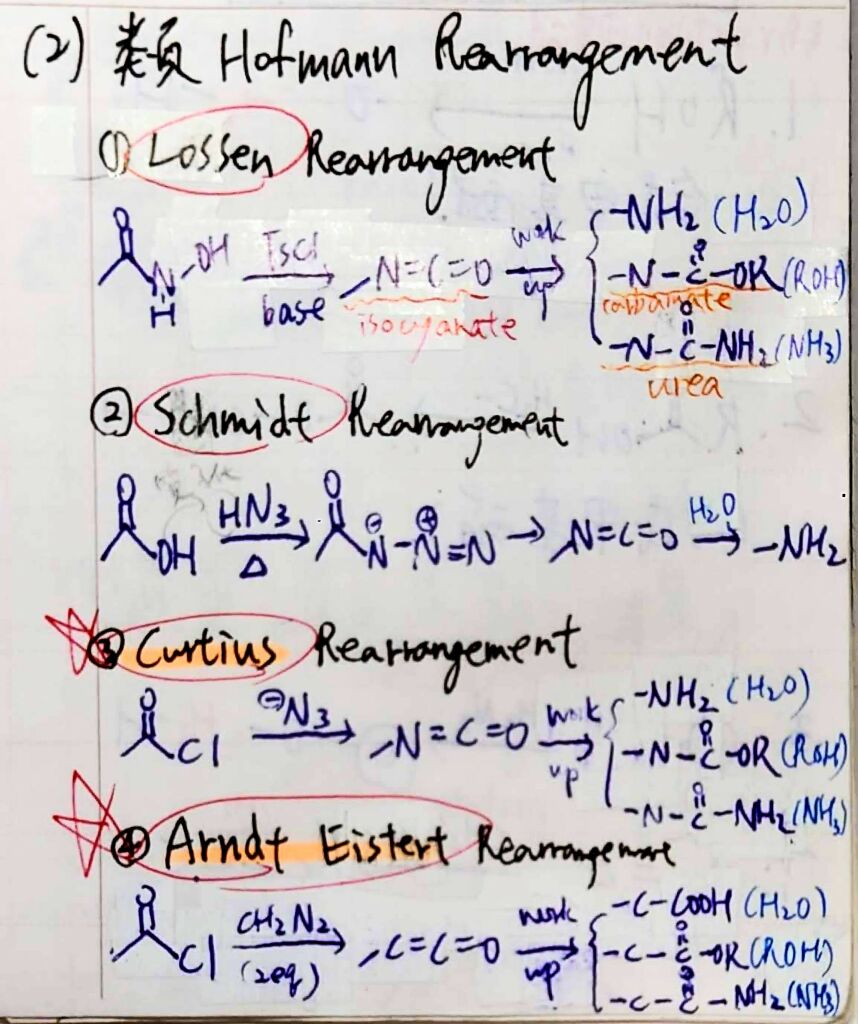 (2) 类页 Hofmann Rearrangement
① Lossen Rearrangement
O
N-OH
H
TsCl
base
N=C=O
isocyanate
work
up
-NH2 (H2O)
O
-N-C-OR (ROH)
carbamate
O
-N-C-NH2 (NH3)
urea
② Schmidt Rearrangement
O
OH
HN3
Δ
O
⊖ ⊕
N-N≡N
N=C=O
H2O
-NH2
③ Curtius Rearrangement
O
Cl
⊖N3
N=C=O
work
up
-NH2 (H2O)
O
-N-C-OR (ROH)
O
-N-C-NH2 (NH3)
④ Arndt Eistert Rearrangement
O
Cl
CH2N2
(2eq)
C=C=O
work
up
-C-COOH (H2O)
O
-C-C-OR (ROH)
O
-C-C-NH2 (NH3)